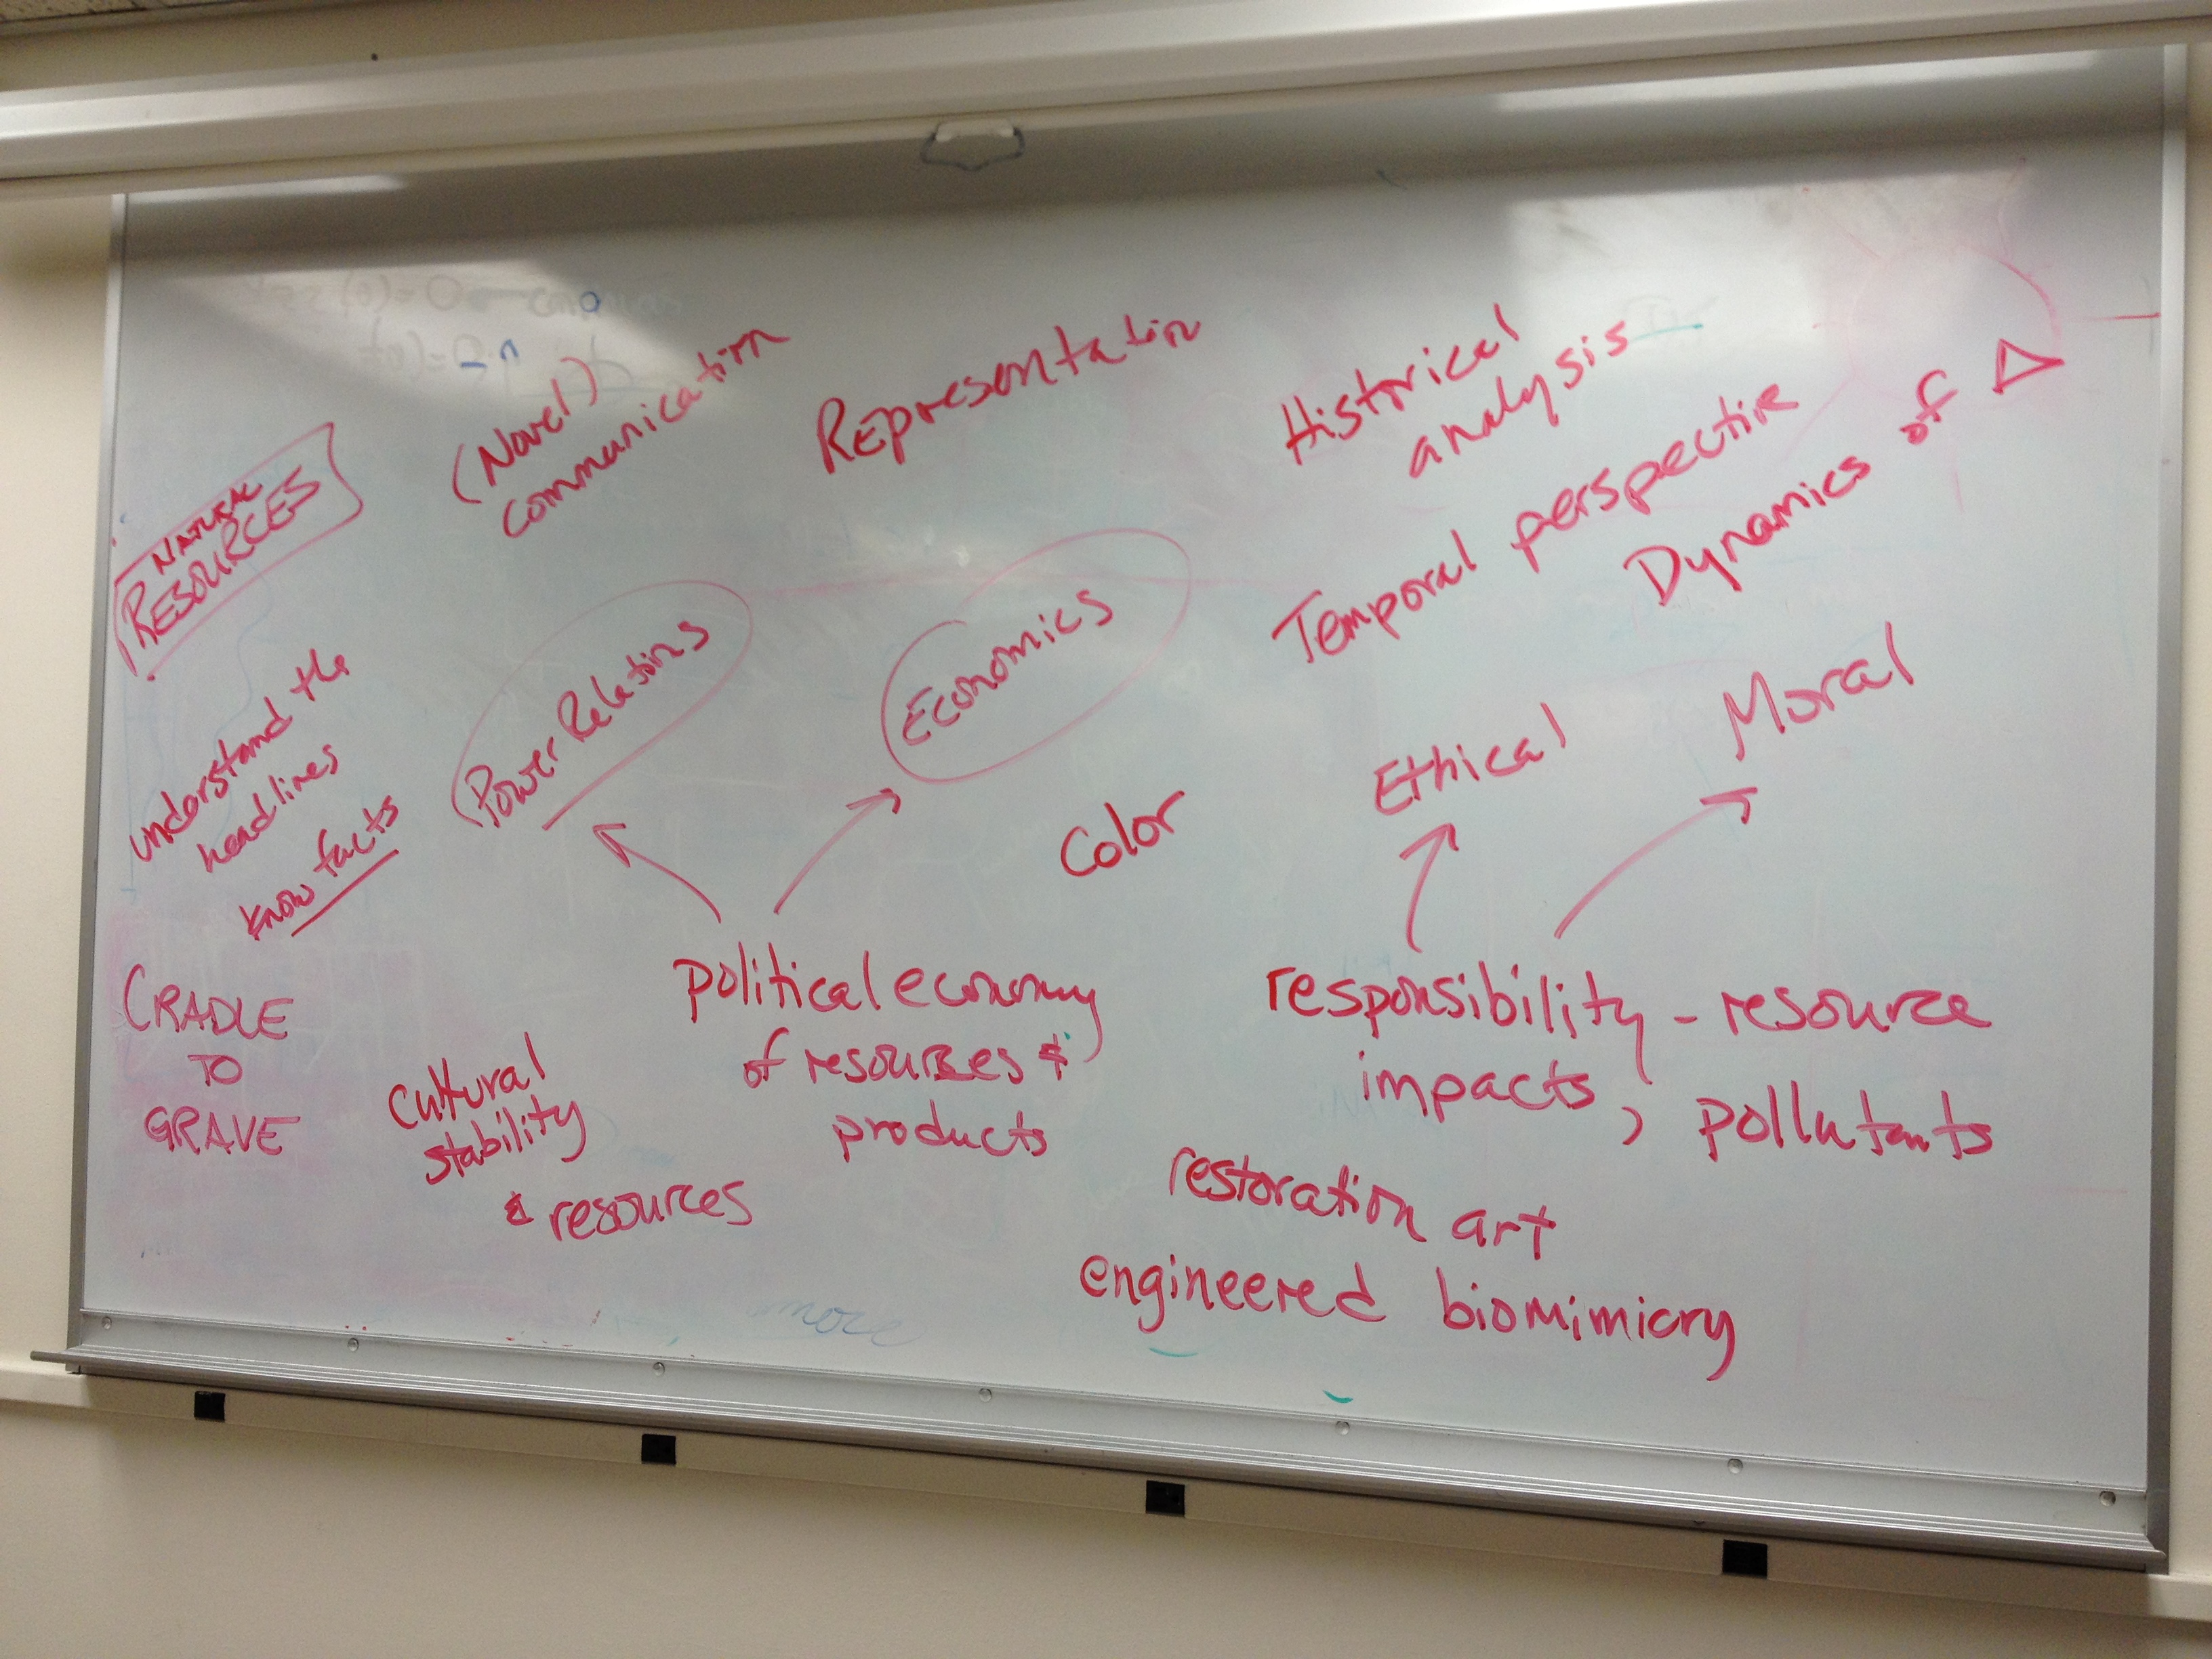 NATURAL
RESOURCES
(Novel)
communication
Representation
Historical
analysis
Temporal perspective
Dynamics of Δ
understand the
headlines
know facts
Power Relations
Economics
Color
Ethical
Moral
CRADLE
TO
GRAVE
cultural
stability
& resources
political economy
of resources &
products
responsibility - resource
impacts, pollutants
restoration art
engineered biomimicry
more